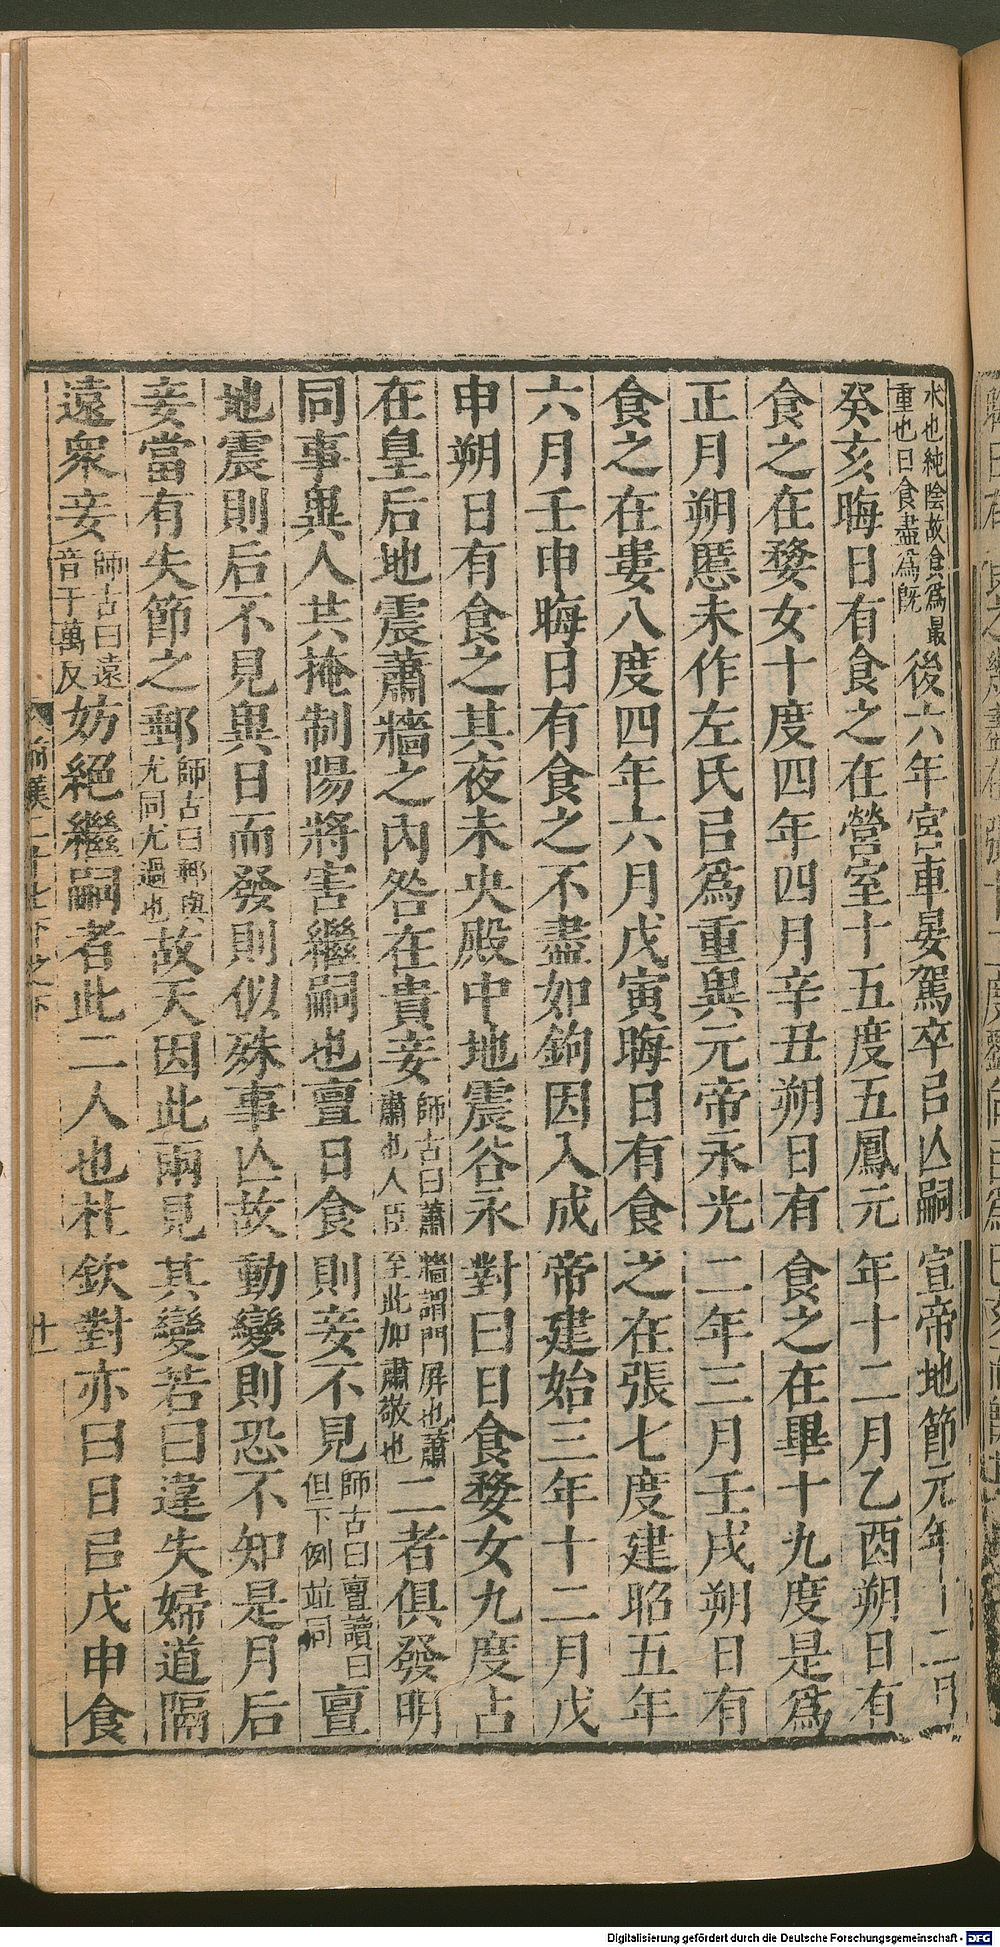 水也純陰故食爲最
重也日食盡爲旣
後六年宮車晏駕卒㠯亾嗣宣帝地節元年十二月
癸亥晦日有食之在營室十五度五鳳元年十二月乙酉朔日有
食之在婺女十度四年四月辛丑朔日有食之在畢十九度是爲
正月朔慝未作左氏㠯爲重異元帝永光二年三月壬戌朔日有
食之在婁八度四年六月戊寅晦日有食之在張七度建昭五年
六月壬申晦日有食之不盡如鉤因入成帝建始三年十二月戊
申朔日有食之其夜未央殿中地震谷永對曰日食婺女九度占
在皇后地震蕭牆之內咎在貴妾師古曰蕭牆謂門屏也蕭肅也人臣至此加肅敬也二者俱發明
同事異人共掩制陽將害繼嗣也亶日食則妾不見師古曰亶讀曰但下例竝同亶
地震則后不見異日而發則似殊事亾故動變則恐不知是月后
妾當有失節之郵師古曰郵與尤同尤過也故天因此兩見其變若曰違失婦道隔
遠衆妾師古曰遠音于萬反妨絕繼嗣者此二人也杜欽對亦曰日㠯戊申食
前漢二十七下之下
廿
Digitalisierung gefördert durch die Deutsche Forschungsgemeinschaft - DFG